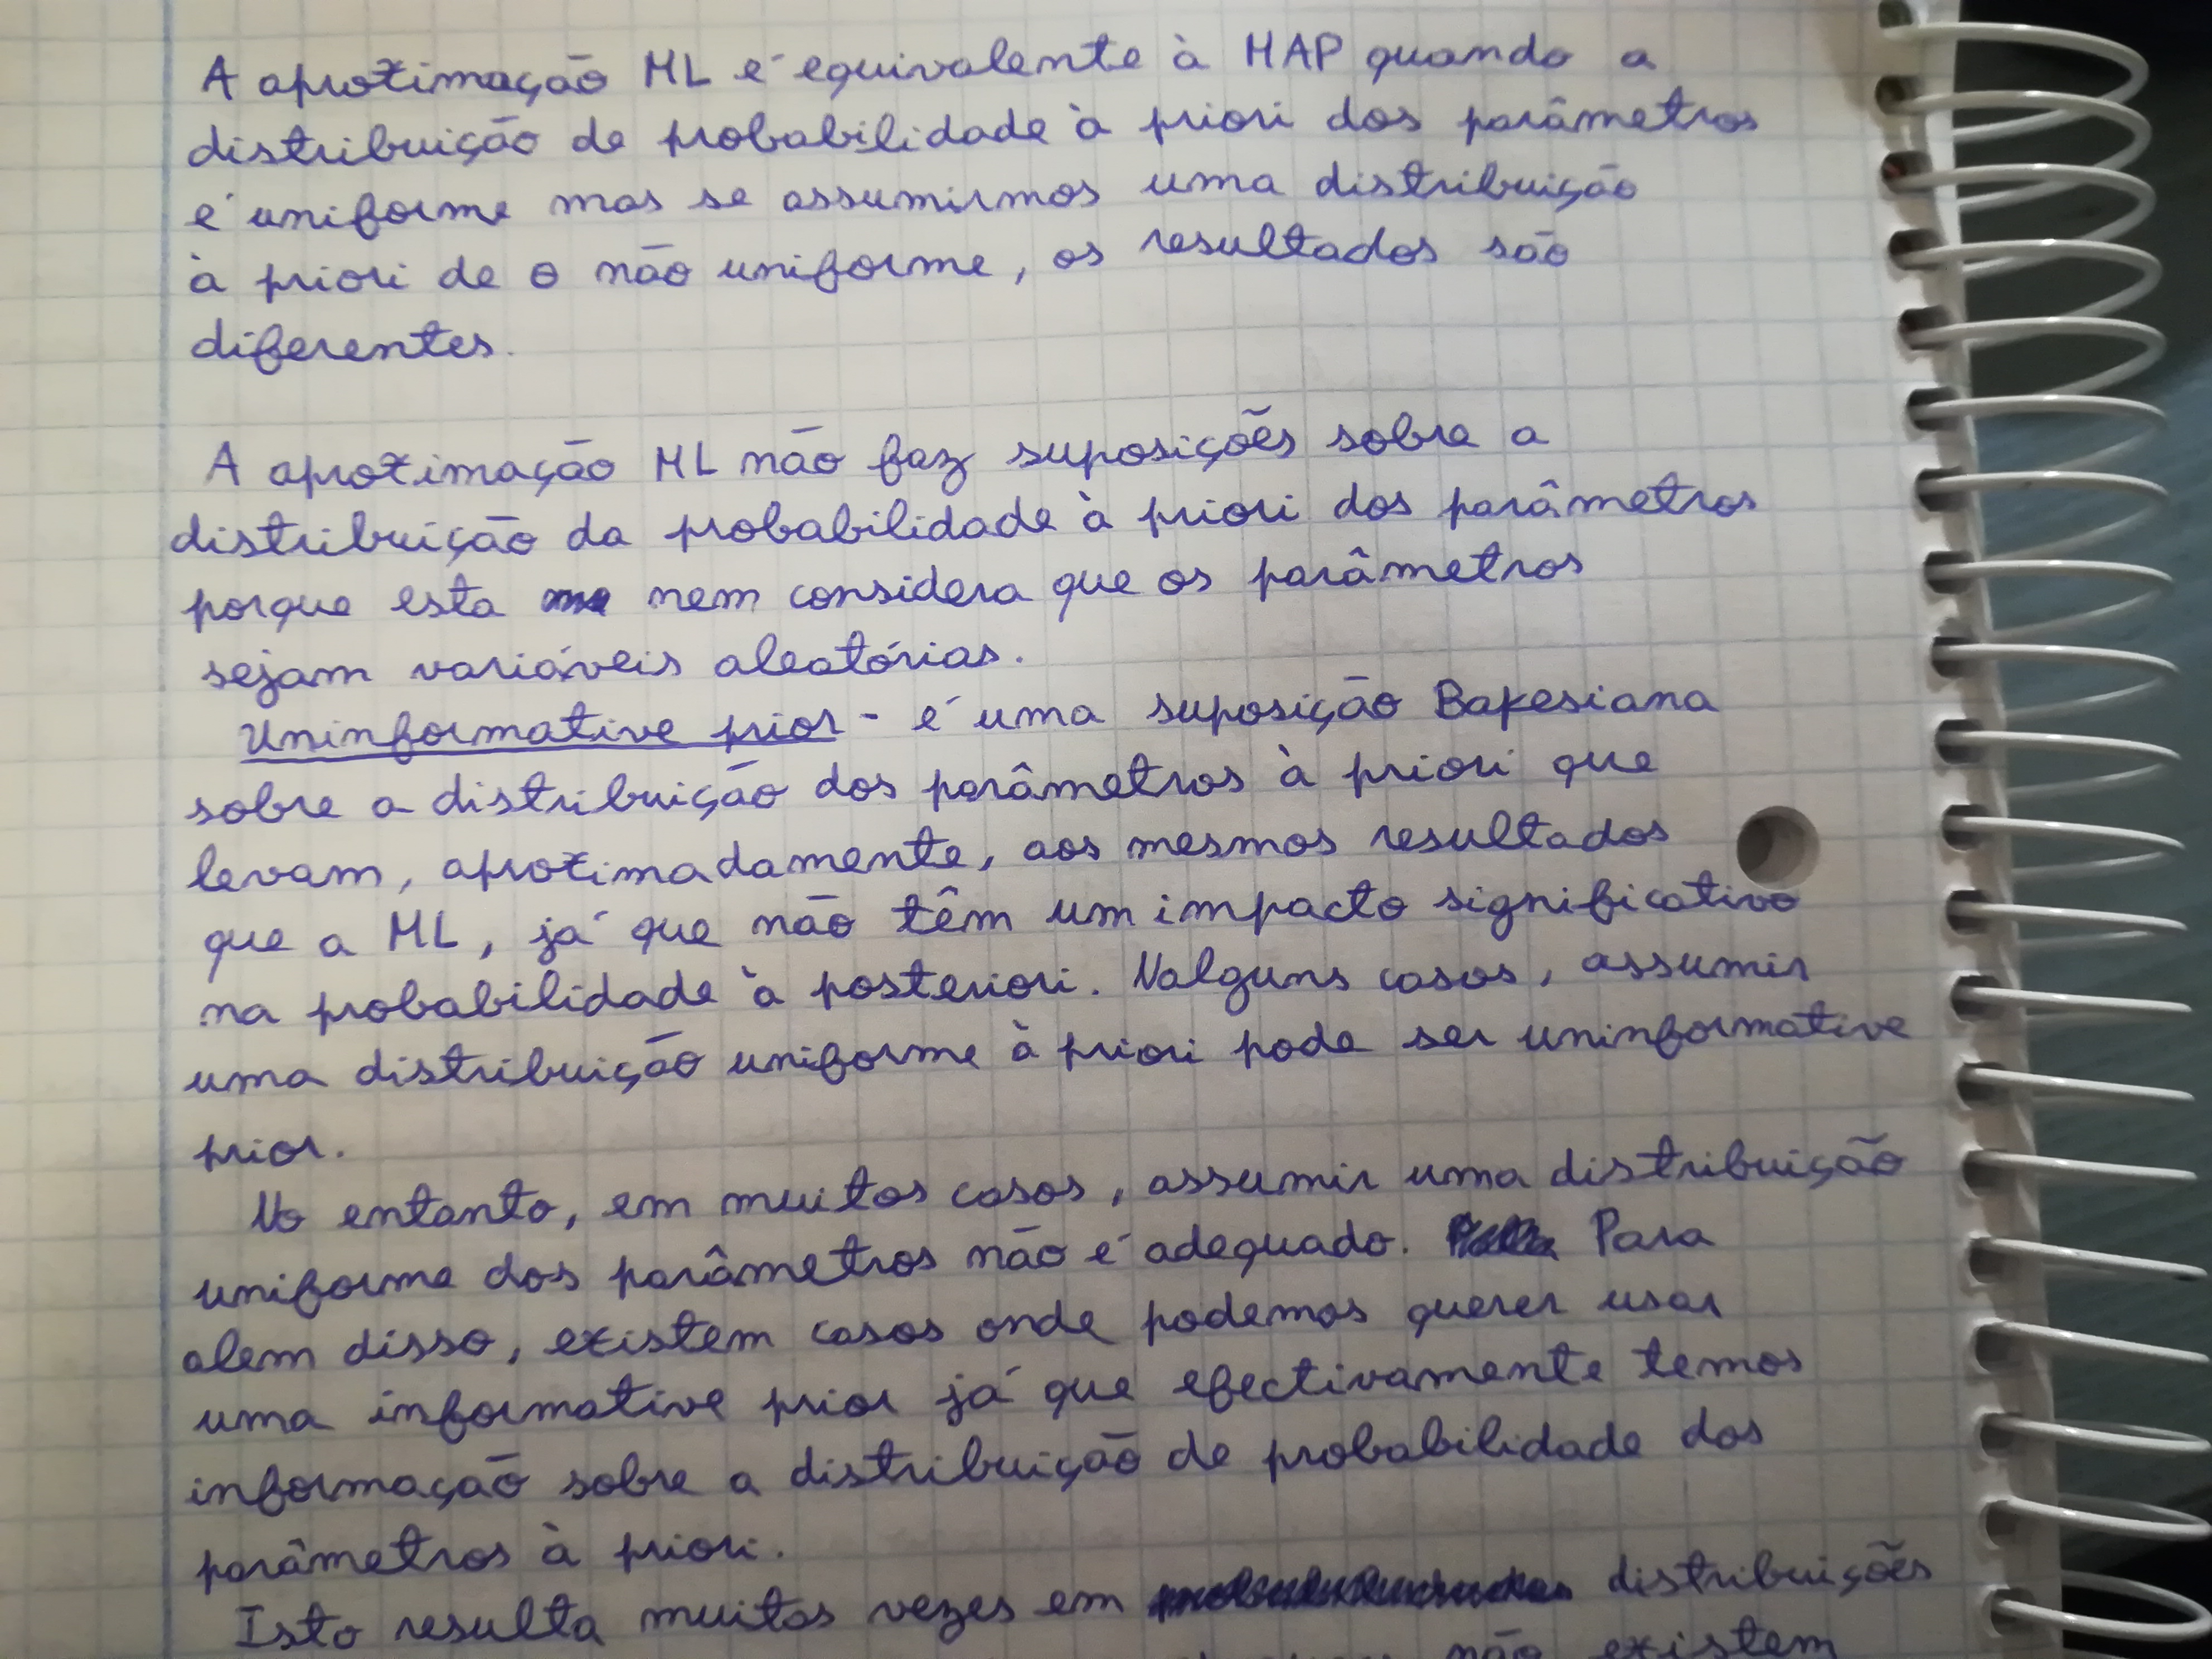 A aproximação ML é equivalente à MAP quando a
distribuição de probabilidade à priori dos parâmetros
é uniforme mas se assumirmos uma distribuição
à priori de θ não uniforme, os resultados são
diferentes.
A aproximação ML não faz suposições sobre a
distribuição da probabilidade à priori dos parâmetros
porque esta nem considera que os parâmetros
sejam variáveis aleatórias.
Uninformative prior - é uma suposição Bayesiana
sobre a distribuição dos parâmetros à priori que
levam, aproximadamente, aos mesmos resultados
que a ML, já que não têm um impacto significativo
na probabilidade à posteriori. Nalguns casos, assumir
uma distribuição uniforme à priori pode ser uninformative
prior.
No entanto, em muitos casos, assumir uma distribuição
uniforme dos parâmetros não é adequado. Para
alem disso, existem casos onde podemos querer usar
uma informative prior já que efectivamente temos
informação sobre a distribuição de probabilidade dos
parâmetros à priori.
Isto resulta muitas vezes em distribuições
não existem